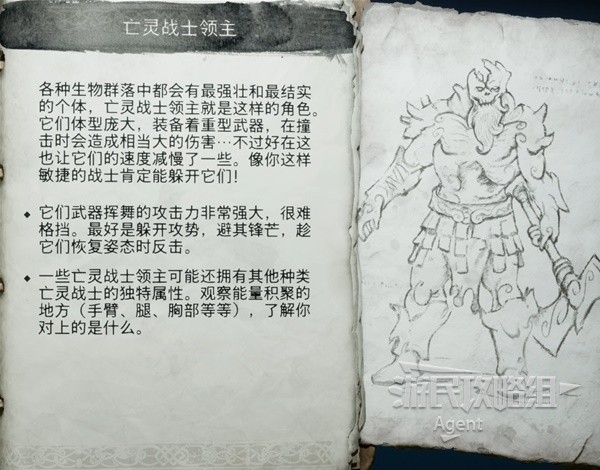 亡灵战士领主
各种生物群落中都会有最强壮和最结实
的个体，亡灵战士领主就是这样的角色。
它们体型庞大，装备着重型武器，在撞
击时会造成相当大的伤害…不过好在这
也让它们的速度减慢了一些。像你这样
敏捷的战士肯定能躲开它们！
◆ 它们武器挥舞的攻击力非常强大，很难
格挡。最好是躲开攻势，避其锋芒，趁
它们恢复姿态时反击。
◆ 一些亡灵战士领主可能还拥有其他种类
亡灵战士的独特属性。观察能量积聚的
地方（手臂、腿、胸部等等），了解你
对上的是什么。
游民攻略组
Agent